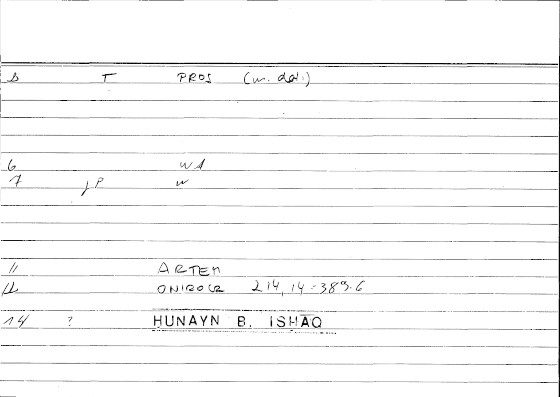 s T PROS (m. dat.)
6 WA
7 P W
11 ARTEM
12 ONIROCR 214,14-389.6
14 ? HUNAYN B. ISHAQ